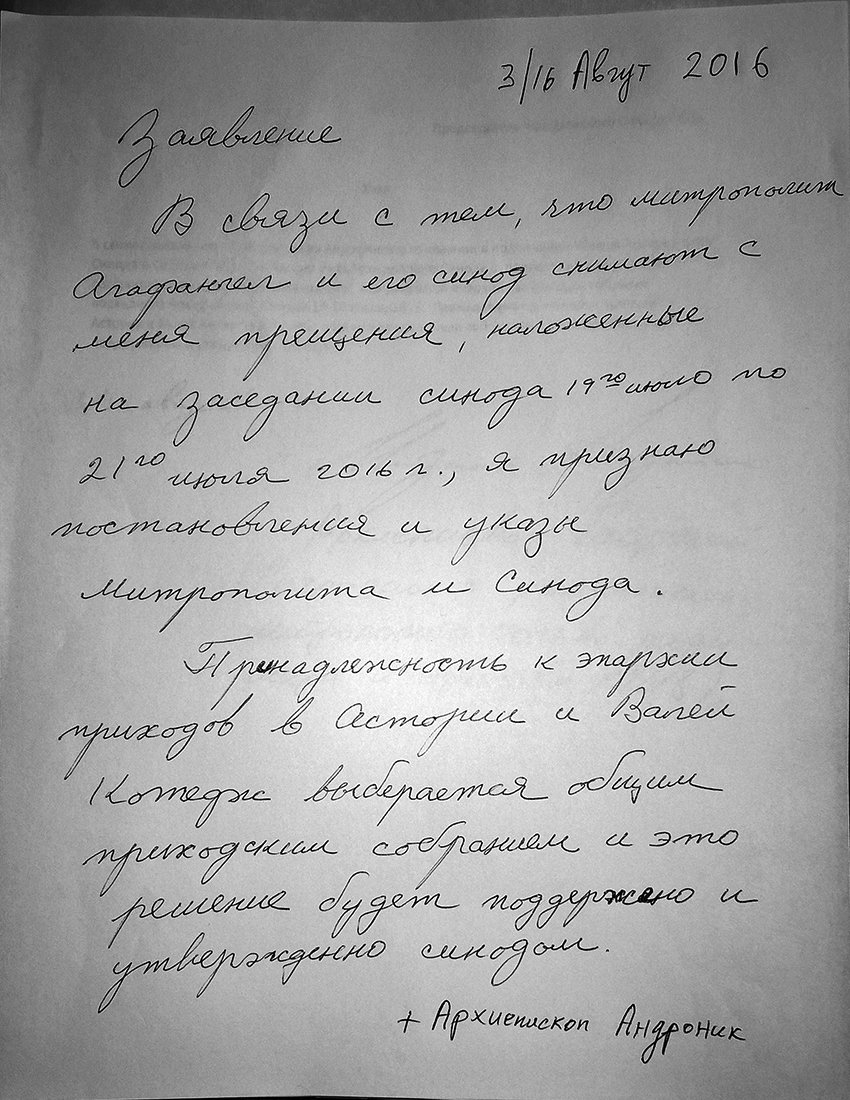 3/16 Авгут 2016
Заявление
В связи с тем, что митрополит
Агафангел и его синод снимают с
меня прещения, наложенные
на заседании синода 19го июло по
21го июля 2016 г., я признаю
постановления и указы
Митрополита и Синода.
Принадлежность к эпархии
приходов в Астории и Валей
Котедж выберается общим
приходским собранием и это
решение будет поддержано и
утвержденно синодом.
+ Архиепископ Андроник